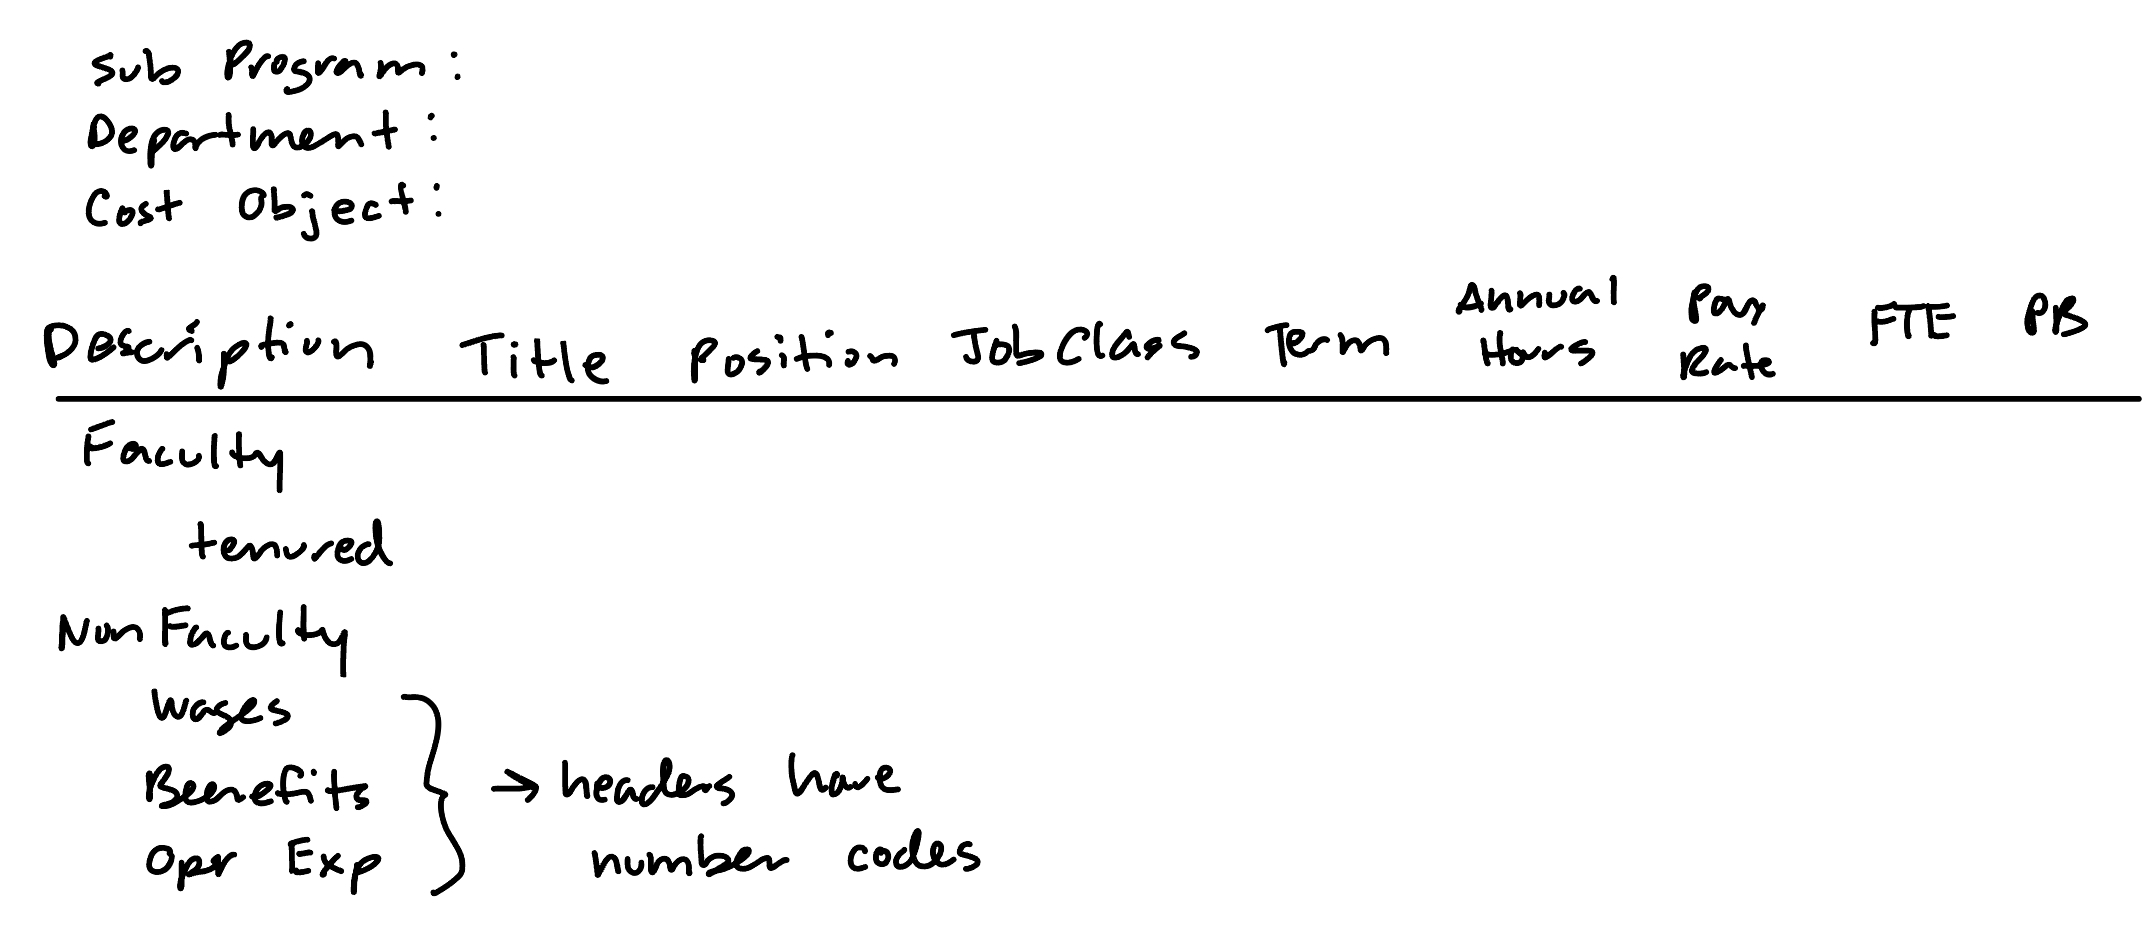 Sub Program:
Department:
Cost Object:
Description Title Position Job Class Term Annual Hours Pay Rate FTE PB
Faculty
tenured
Non Faculty
Wages
Benefits → headers have
Opr Exp number codes